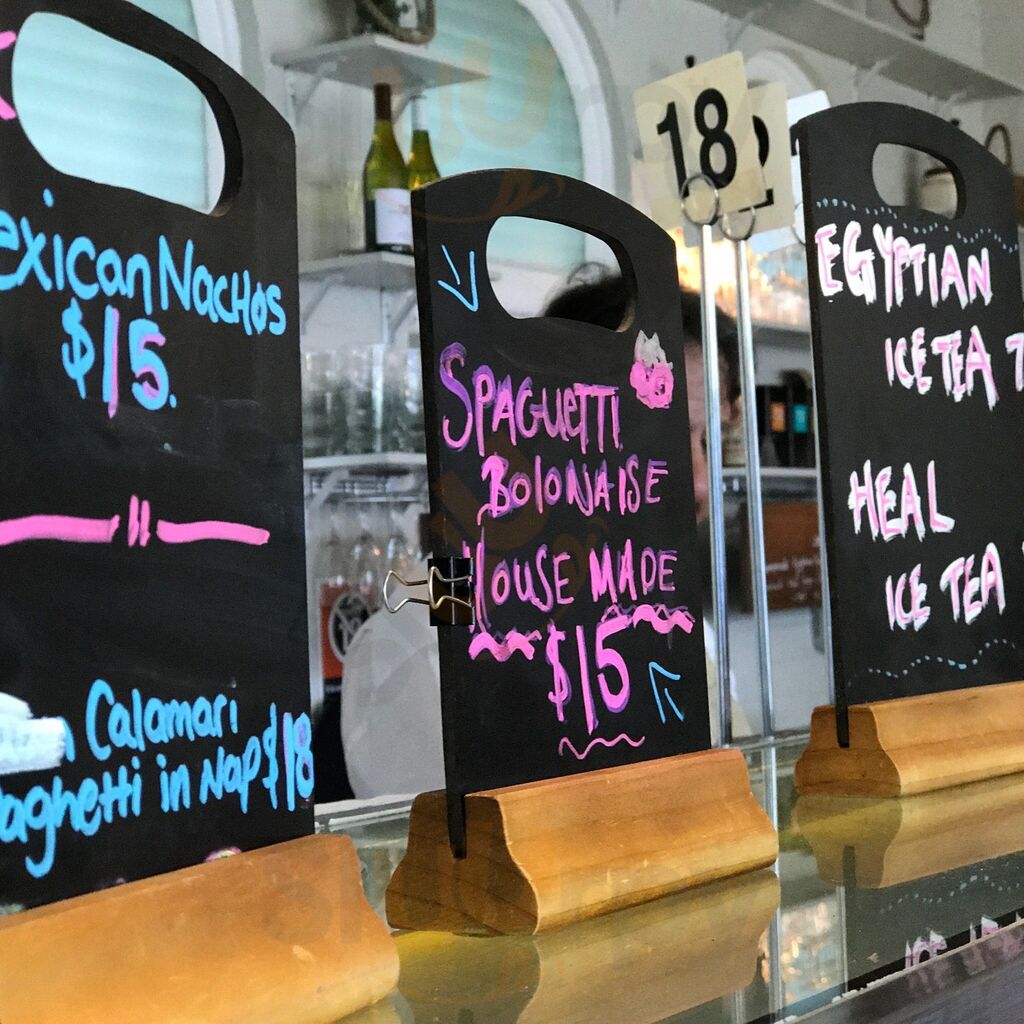 exican Nachos
$15.
Calamari
aghetti in Nap $18
SPAGUETTI
BOLONAISE
HOUSE MADE
$15
18
2
EGYPTIAN
ICE TEA 7
HEAL
ICE TEA